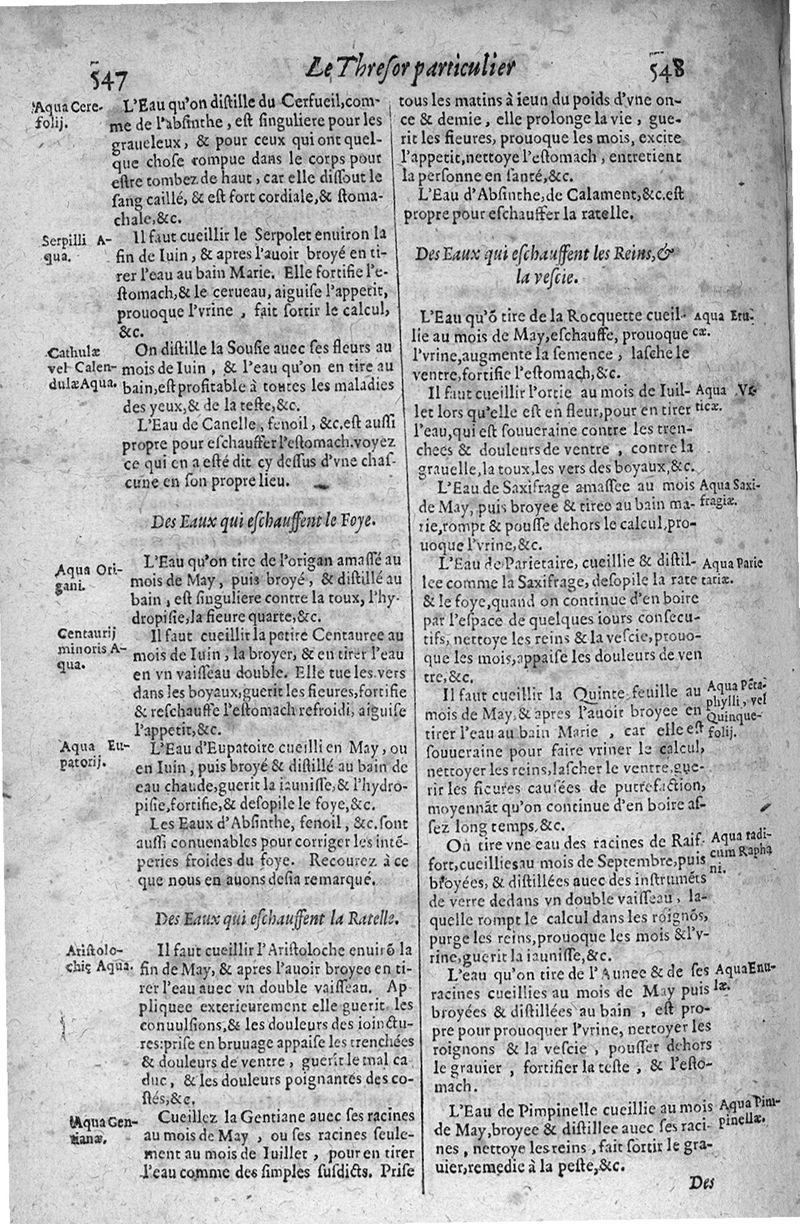 547
Le Thresor particulier
548
Aqua Cere-
folij.
L'Eau qu'on distille du Cerfueil, com-
me de l'absinthe, est singuliere pour les
graueleux, & pour ceux qui ont quel-
que chose rompue dans le corps pour
estre tombez de haut, car elle dissout le
sang caillé, & est fort cordiale, & stoma-
chale, &c.
Serpilli A-
qua.
Il faut cueillir le Serpolet enuiron la
fin de Iuin, & apres l'auoir broyé en ti-
rer l'eau au bain Marie. Elle fortifie l'e-
stomach, & le cerueau, aiguise l'appetit,
prouoque l'vrine, fait sortir le calcul,
&c.
Cathulæ
vel Calen-
dulæ Aqua.
On distille la Sousie auec ses fleurs au
mois de Iuin, & l'eau qu'on en tire au
bain, est profitable à toutes les maladies
des yeux, & de la teste, &c.
L'Eau de Canelle, fenoil, &c. est aussi
propre pour eschauffer l'estomach. voyez
ce qui en a esté dit cy dessus d'vne chas-
cune en son propre lieu.
Des Eaux qui eschauffent le Foye.
Aqua Ori-
gani.
L'Eau qu'on tire de l'origan amassé au
mois de May, puis broyé, & distillé au
bain, est singuliere contre la toux, l'hy-
dropisie, la fieure quarte, &c.
Centaurij
minoris A-
qua.
Il faut cueillir la petite Centauree au
mois de Iuin, la broyer, & en tirer l'eau
en vn vaisseau double. Elle tue les vers
dans les boyaux, guerit les fieures, fortifie
& reschauffe l'estomach refroidi, aiguise
l'appetit, &c.
Aqua Eu-
patorij.
L'Eau d'Eupatoire cueilli en May, ou
en Iuin, puis broyé & distillé au bain de
eau chaude, guerit la iaunisse, & l'hydro-
pisie, fortifie, & desopile le foye, &c.
Les Eaux d'Absinthe, fenoil, &c. sont
aussi conuenables pour corriger les inté-
peries froides du foye. Recourez à ce
que nous en auons desia remarqué.
Des Eaux qui eschauffent la Ratelle.
Aristolo-
chię Aqua.
Il faut cueillir l'Aristoloche enuirō la
fin de May, & apres l'auoir broyee en ti-
rer l'eau auec vn double vaisseau. Ap
pliquee exterieurement elle guerit les
conuulsions, & les douleurs des ioinctu-
res: prise en bruuage appaise les trenchées
& douleurs de ventre, guerit le mal ca
duc, & les douleurs poignantes des co-
stés, &c.
Aqua Gen-
tianæ.
Cueillez la Gentiane auec ses racines
au mois de May, ou ses racines seule-
ment au mois de Iuillet, pour en tirer
l'eau comme des simples susdicts. Prise
tous les matins à ieun du poids d'vne on-
ce & demie, elle prolonge la vie, gue-
rit les fieures, prouoque les mois, excite
l'appetit, nettoye l'estomach, entretient
la personne en santé, &c.
L'Eau d'Absinthe, de Calament, &c. est
propre pour eschauffer la ratelle.
Des Eaux qui eschauffent les Reins, &
la vescie.
L'Eau qu'ō tire de la Rocquette cueil-
lie au mois de May, eschauffe, prouoque
l'vrine, augmente la semence, lasche le
ventre, fortifie l'estomach, &c.
Aqua Eru-
cæ.
Il faut cueillir l'ortie au mois de Iuil-
let lors qu'elle est en fleur, pour en tirer
l'eau, qui est souueraine contre les tren-
chees & douleurs de ventre, contre la
grauelle, la toux, les vers des boyaux, &c.
Aqua Vr-
ticæ.
L'Eau de Saxifrage amassee au mois
de May, puis broyee & tiree au bain ma-
rie, rompt & pousse dehors le calcul, pro-
uoque l'vrine, &c.
Aqua Saxi-
fragiæ.
L'Eau de Parietaire, cueillie & distil-
lee comme la Saxifrage, desopile la rate
& le foye, quand on continue d'en boire
par l'espace de quelques iours consecu-
tifs, nettoye les reins & la vescie, prouo-
que les mois, appaise les douleurs de ven
tre, &c.
Aqua Parie
tariæ.
Il faut cueillir la Quinte feuille au
mois de May, & apres l'auoir broyee en
tirer l'eau au bain Marie, car elle est
souueraine pour faire vriner le calcul,
nettoyer les reins, lascher le ventre, gue-
rir les fieures causées de putrefaction,
moyennāt qu'on continue d'en boire as-
sez long temps, &c.
Aqua Pēta-
phylli, vel
Quinque-
folij.
On tire vne eau des racines de Raif-
fort, cueillies au mois de Septembre, puis
broyées, & distillées auec des instrumēts
de verre dedans vn double vaisseau, la-
quelle rompt le calcul dans les roignōs,
purge les reins, prouoque les mois & l'v-
rine, guerit la iaunisse, &c.
Aqua radi-
cum Rapha
ni.
L'eau qu'on tire de l'Aunee & de ses
racines cueillies au mois de May puis
broyées & distillées au bain, est pro-
pre pour prouoquer l'vrine, nettoyer les
roignons & la vescie, pousser dehors
le grauier, fortifier la teste, & l'esto-
mach.
Aqua Enu-
læ.
L'Eau de Pimpinelle cueillie au mois
de May, broyee & distillee auec ses raci-
nes, nettoye les reins, fait sortir le gra-
uier, remedie à la peste, &c.
Aqua Pim-
pinellæ.
Des